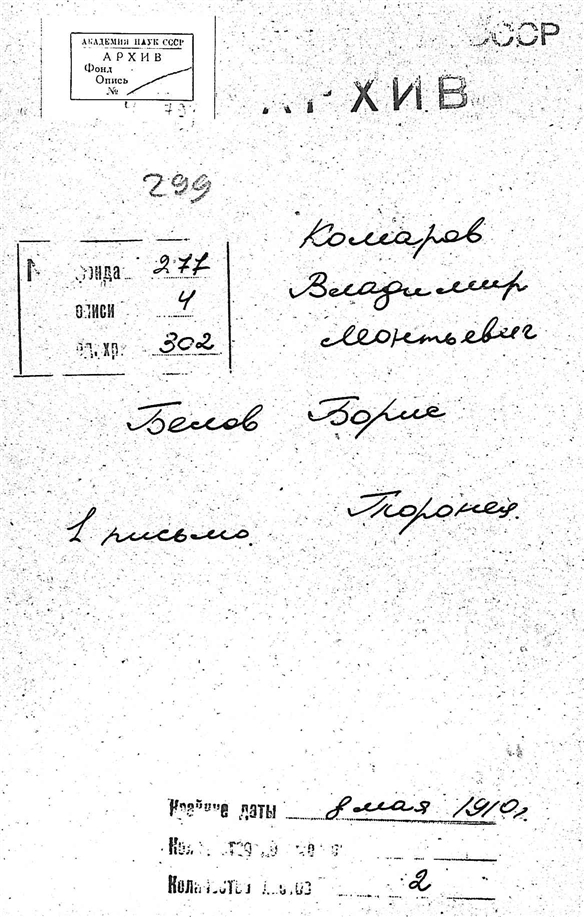 АКАДЕМИЯ НАУК СССР
АРХИВ
Фонд
Опись
№
СССР
АРХИВ
299
Комаров
Владимир
Леонтьевич
фонда 277
описи 4
ед. хр. 302
Белов Борис
Торопец.
1 письмо.
Крайние даты 8 мая 1910 г.
Количество листов 2